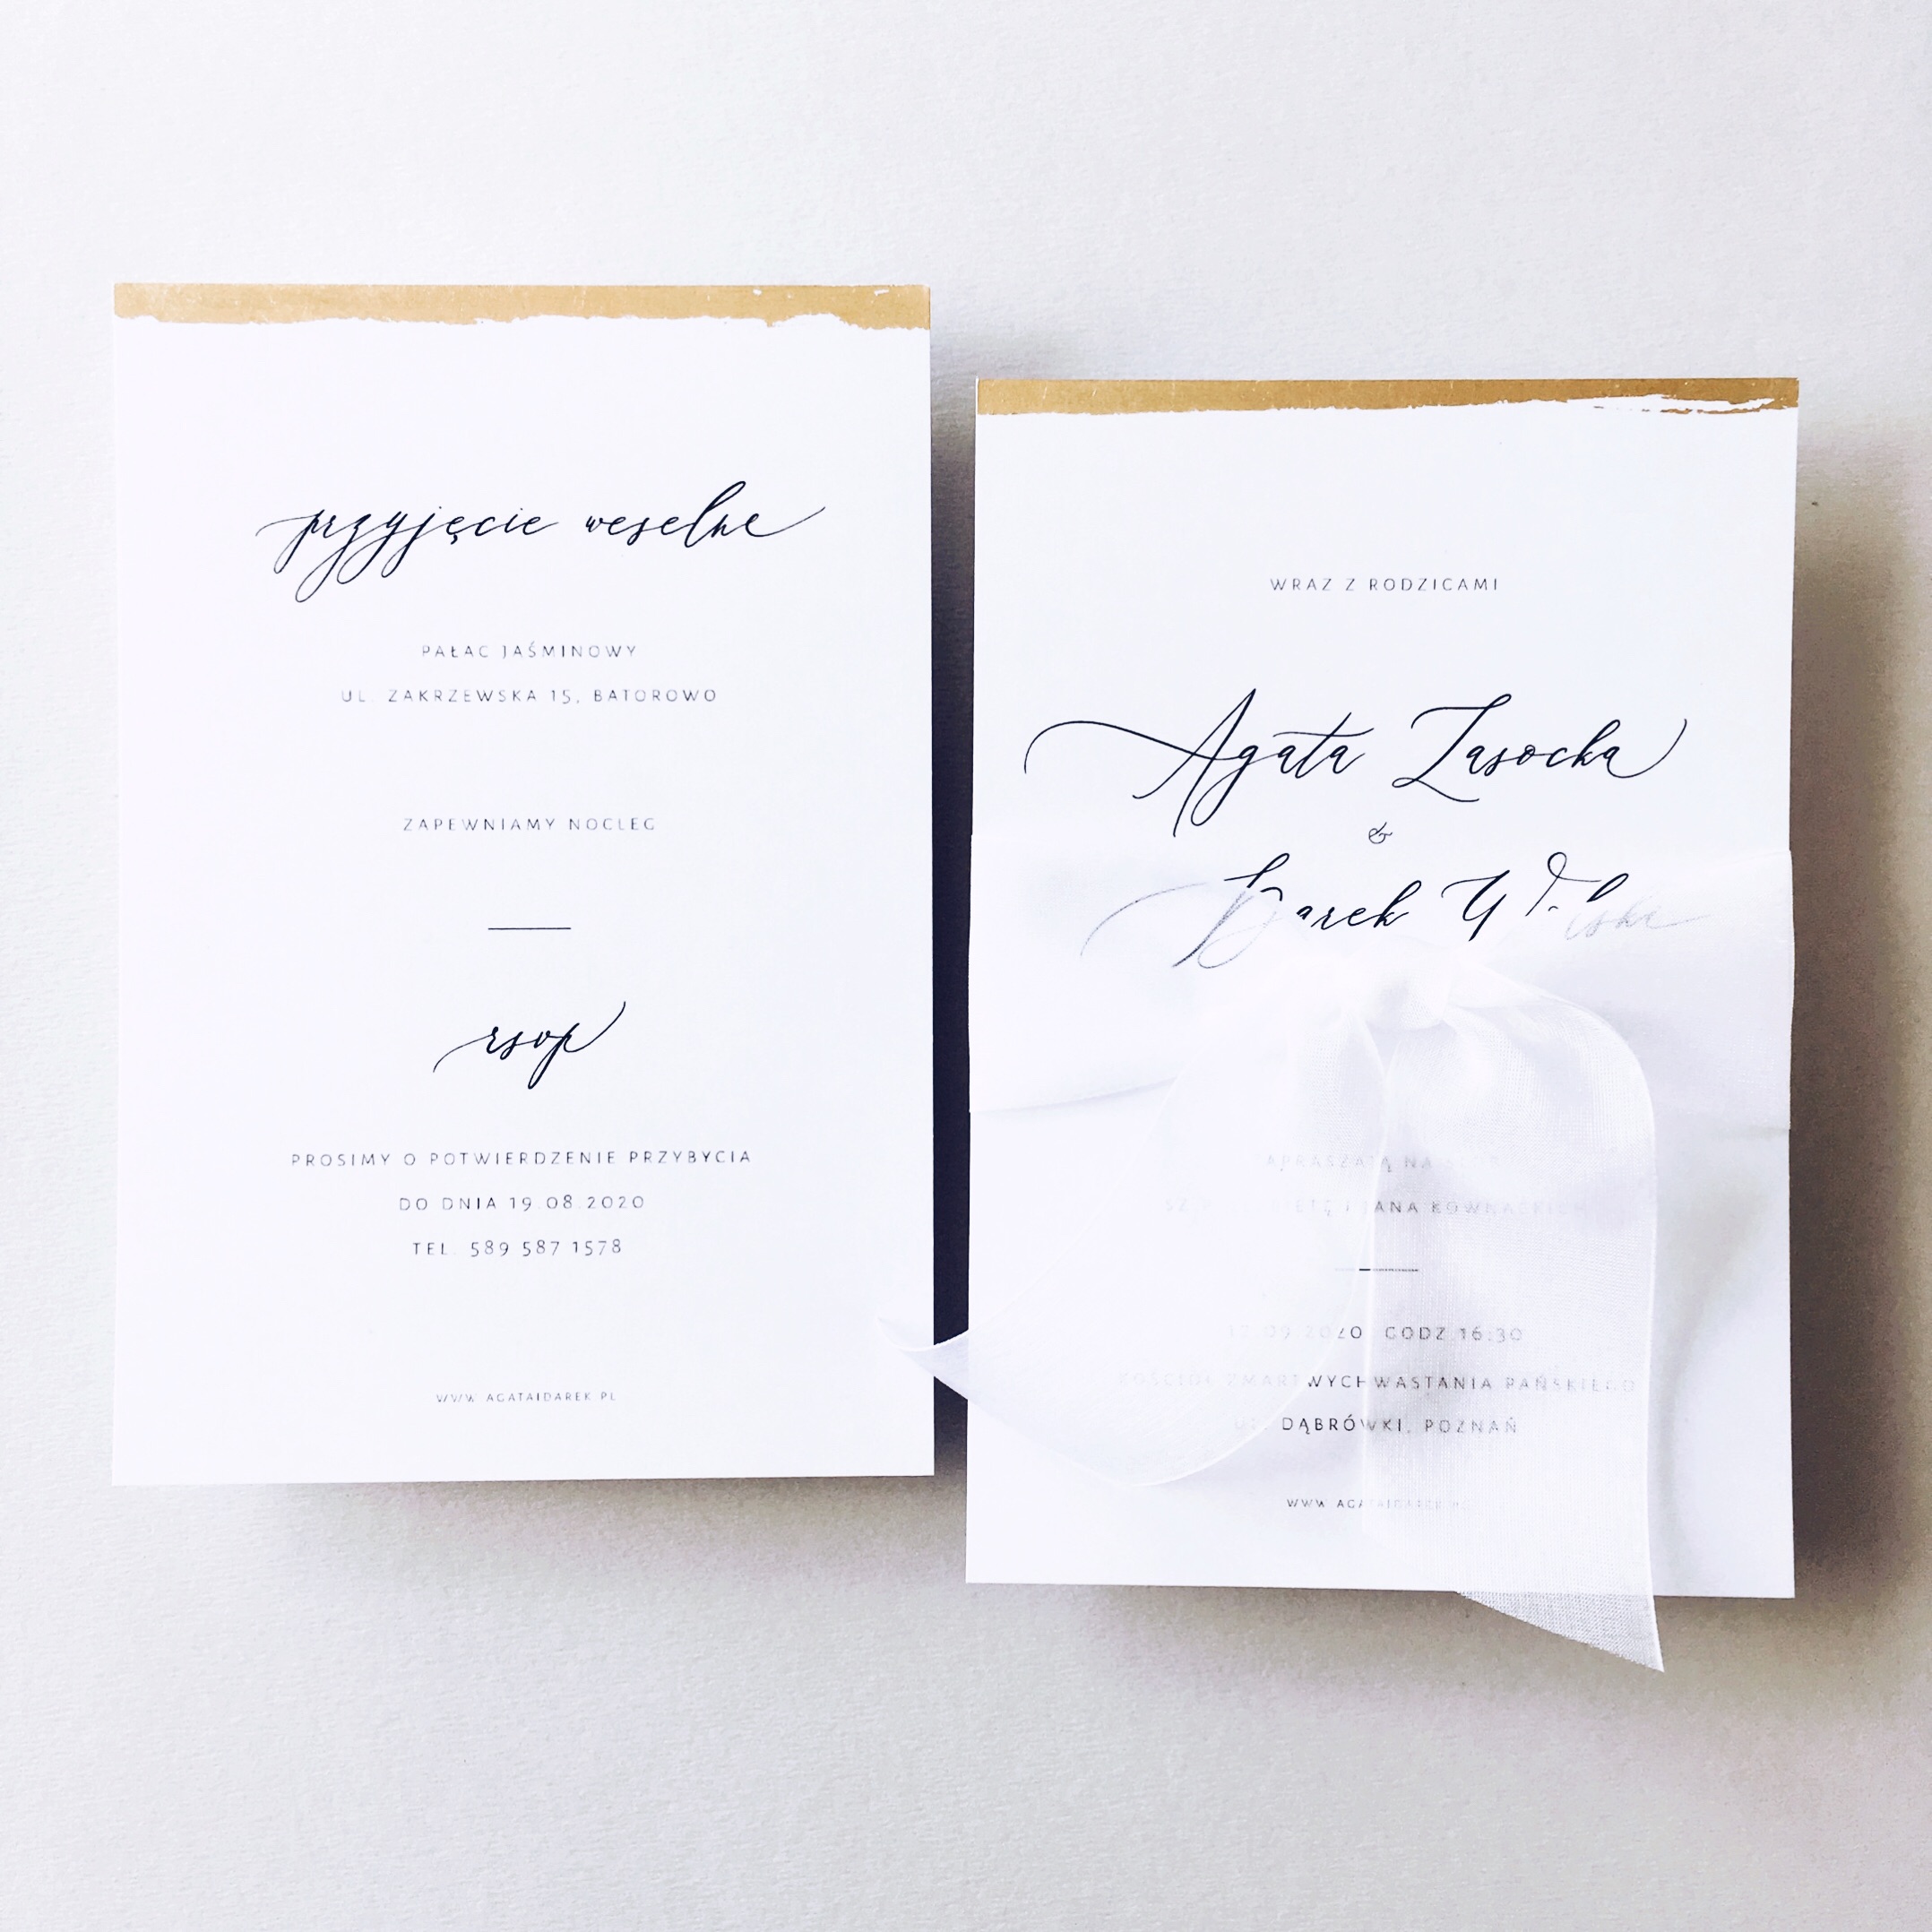 przyjęcie weselne
PAŁAC JAŚMINOWY
UL. ZAKRZEWSKA 15, BATOROWO
ZAPEWNIAMY NOCLEG
rsvp
PROSIMY O POTWIERDZENIE PRZYBYCIA
DO DNIA 19.08.2020
TEL. 589 587 1578
WWW.AGATAIDAREK.PL
WRAZ Z RODZICAMI
Agata Zasocka
&
Darek
NA
I JANA KOWNACKICH
09 2020 GODZ 16:30
KOŚCIÓŁ ZMARTWYCHWASTANIA PAŃSKIEGO
UL. DĄBRÓWKI, POZNAŃ
WWW.AGATAIDAREK.PL